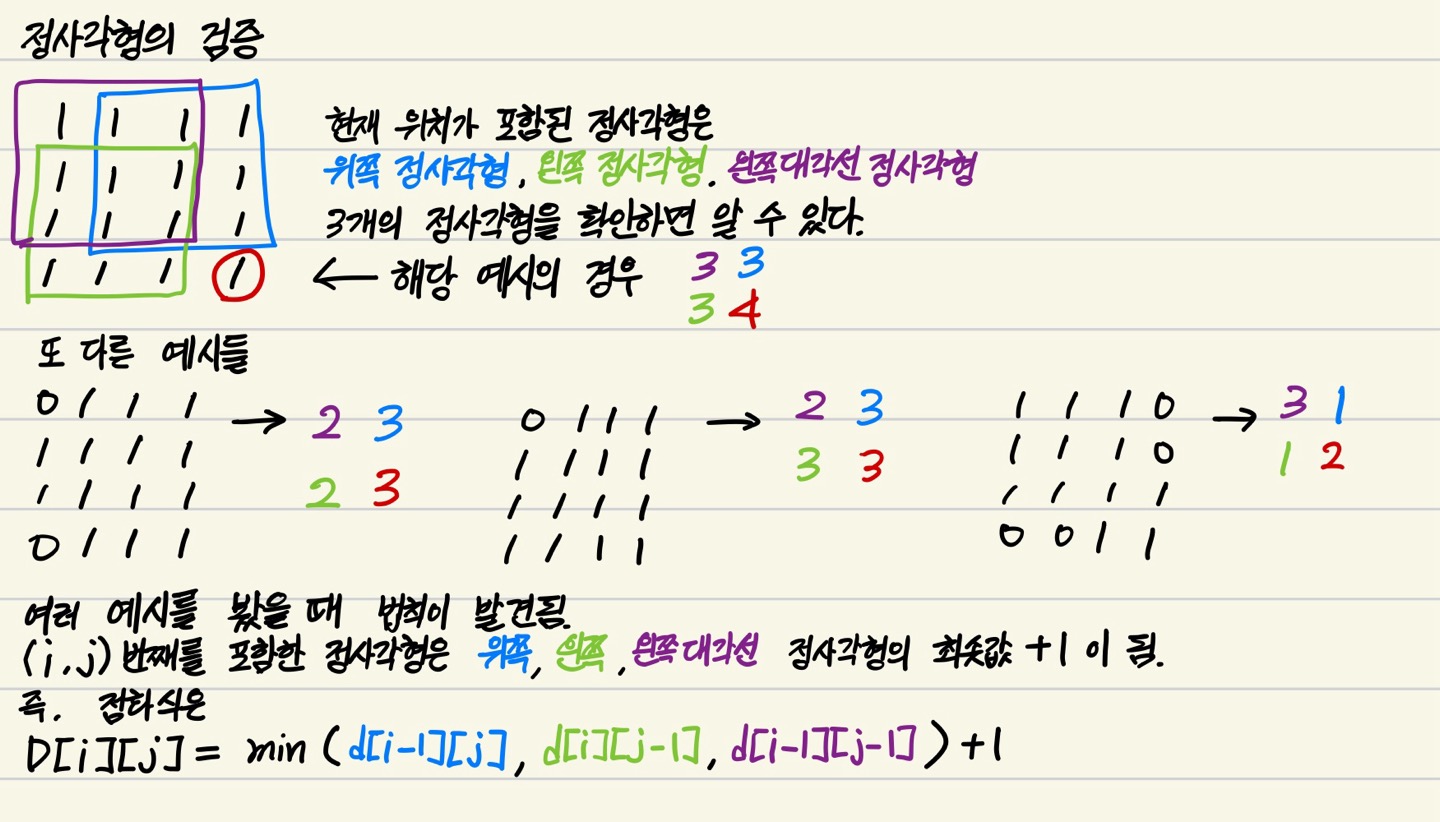 정사각형의 검증
1 1 1 1
1 1 1 1
1 1 1 1
1 1 1 1
현재 위치가 포함된 정사각형은
위쪽 정사각형, 왼쪽 정사각형. 왼쪽대각선 정사각형
3개의 정사각형을 확인하면 알 수 있다.
← 해당 예시의 경우
3 3
3 4
또 다른 예시들
0 1 1 1
1 1 1 1
1 1 1 1
0 1 1 1
→
2 3
2 3
0 1 1 1
1 1 1 1
1 1 1 1
1 1 1 1
→
2 3
3 3
1 1 1 0
1 1 1 0
1 1 1 1
0 0 1 1
→
3 1
1 2
여러 예시를 봤을 때 법칙이 발견됨.
(i,j) 번째를 포함한 정사각형은 위쪽, 왼쪽, 왼쪽대각선 정사각형의 최솟값 +1 이 됨.
즉. 점화식은
D[i][j] = min (d[i-1][j], d[i][j-1], d[i-1][j-1]) +1